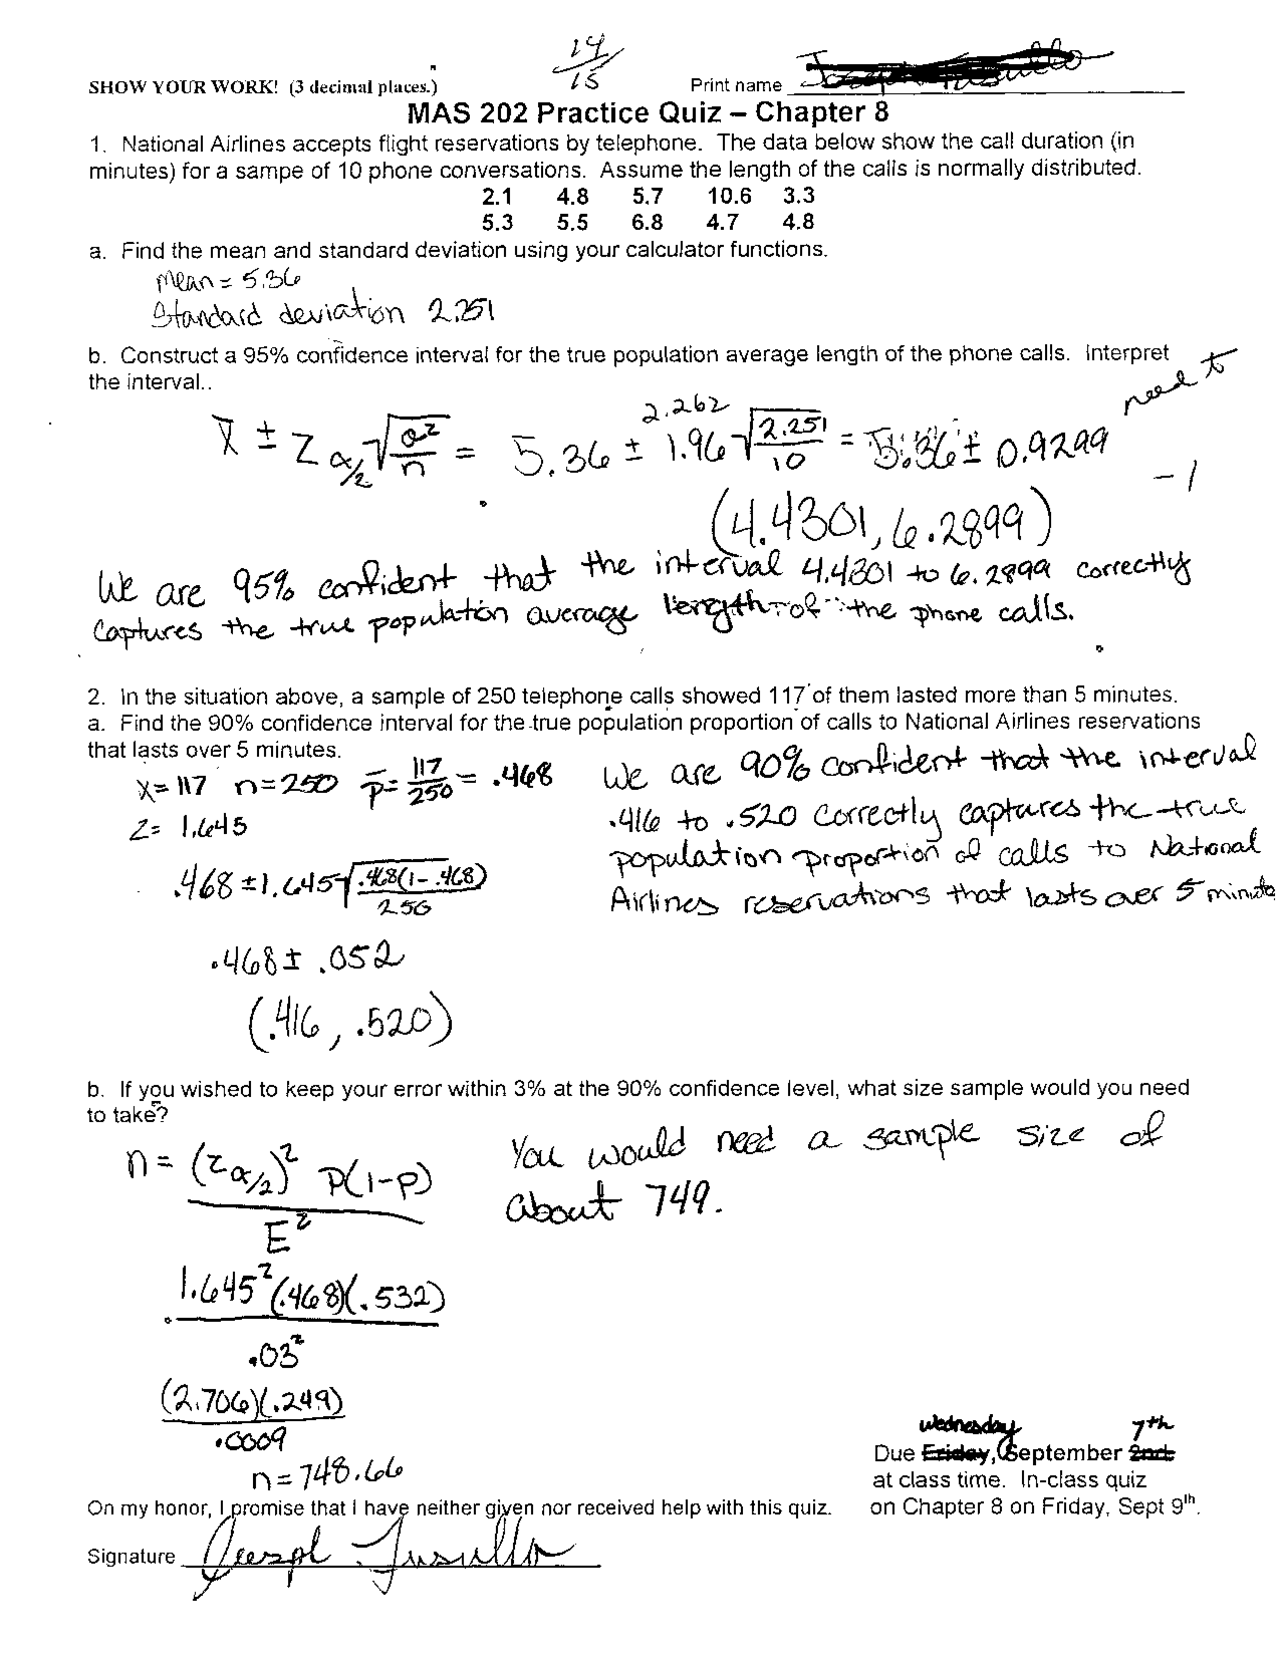 14/15
SHOW YOUR WORK! (3 decimal places.) Print name
MAS 202 Practice Quiz – Chapter 8
1. National Airlines accepts flight reservations by telephone. The data below show the call duration (in
minutes) for a sampe of 10 phone conversations. Assume the length of the calls is normally distributed.
2.1 4.8 5.7 10.6 3.3
5.3 5.5 6.8 4.7 4.8
a. Find the mean and standard deviation using your calculator functions.
Mean = 5.36
Standard deviation 2.251
b. Construct a 95% confidence interval for the true population average length of the phone calls. Interpret
the interval..
need to
2.262
X̄ ± Z α/2 √(σ²/n) = 5.36 ± 1.96 √(2.251/10) = 5.36 ± 0.9299
-1
(4.4301, 6.2899)
We are 95% confident that the interval 4.4301 to 6.2899 correctly
captures the true population average length of the phone calls.
2. In the situation above, a sample of 250 telephone calls showed 117 of them lasted more than 5 minutes.
a. Find the 90% confidence interval for the true population proportion of calls to National Airlines reservations
that lasts over 5 minutes.
x=117 n=250 p̄= 117/250 = .468
Z= 1.645
.468 ± 1.645 √(.468(1-.468)/250)
.468 ± .052
(.416, .520)
We are 90% confident that the interval
.416 to .520 correctly captures the true
population proportion of calls to National
Airlines reservations that lasts over 5 minute
b. If you wished to keep your error within 3% at the 90% confidence level, what size sample would you need
to take?
n = (Zα/2)² P(1-P)
E²
You would need a sample size of
about 749.
1.645² (.468)(.532)
.03²
(2.706)(.249)
.0009
n = 748.66
Wednesday 7th
Due Friday, September 2nd
at class time. In-class quiz
on Chapter 8 on Friday, Sept 9th.
On my honor, I promise that I have neither given nor received help with this quiz.
Signature